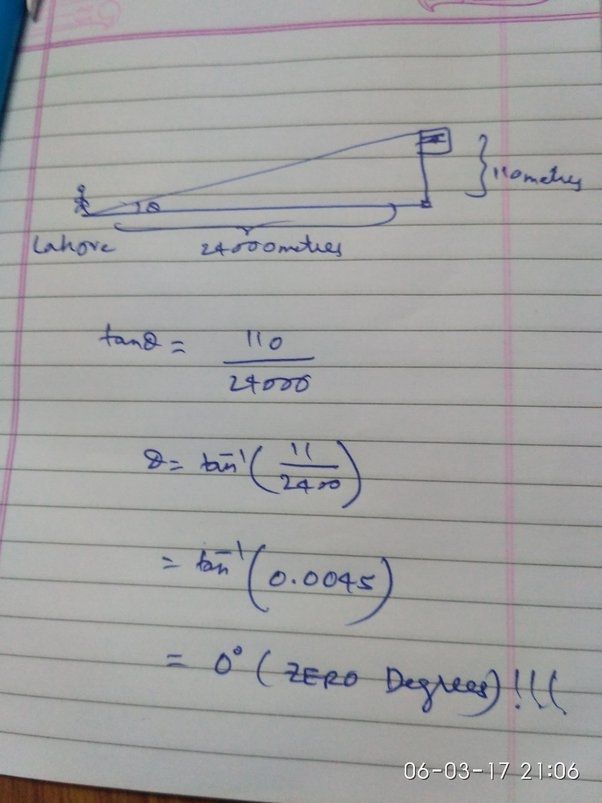 110 metres
θ
Lahore 24000 metres
tanθ = 110
24000
θ = tan⁻¹(11
2400)
= tan⁻¹(0.0045)
= 0° (ZERO Degrees)!!!
06-03-17 21:06